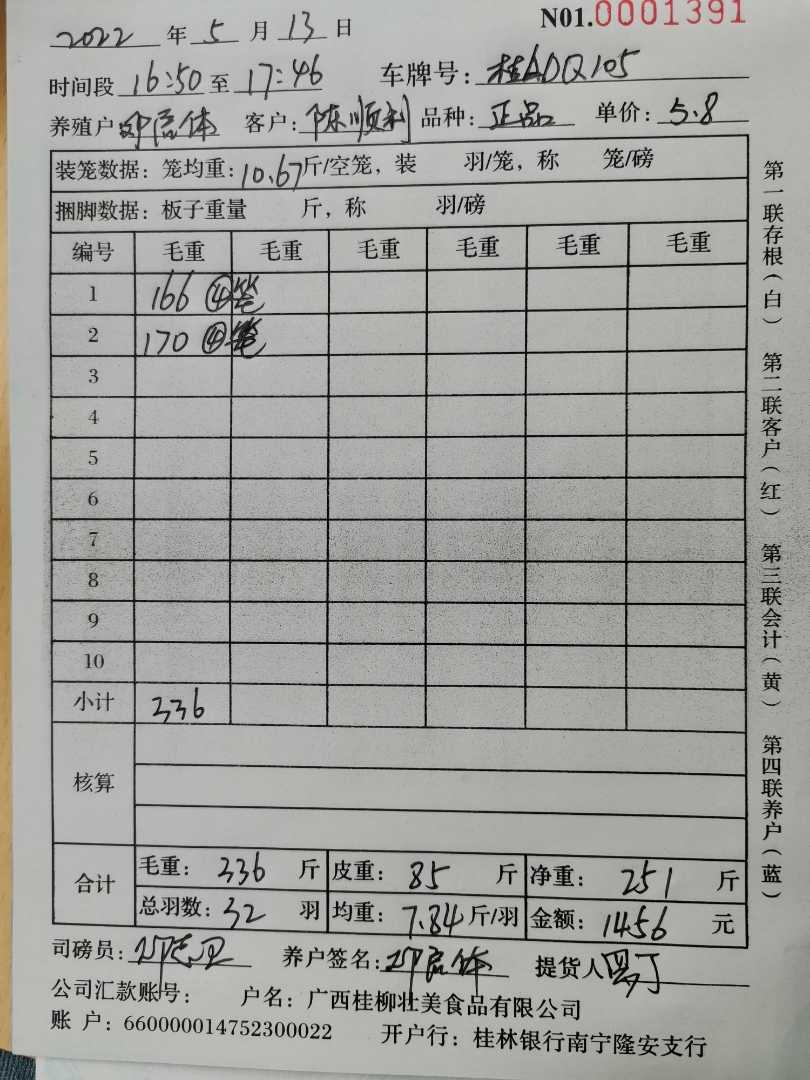 N01.0001391
2022 年 5 月 13 日
时间段 16:50 至 17:46 车牌号: 桂ADQ105
养殖户 邓信体 客户: 陈顺利 品种: 正品 单价: 5.8
装笼数据: 笼均重: 10.67斤/空笼, 装 羽/笼, 称 笼/磅
捆脚数据: 板子重量 斤, 称 羽/磅
编号 毛重 毛重 毛重 毛重 毛重 毛重
1 166 ④笼
2 170 ④笼
3
4
5
6
7
8
9
10
小计 336
核算
合计 毛重: 336 斤 皮重: 85 斤 净重: 251 斤
总羽数: 32 羽 均重: 7.84 斤/羽 金额: 1456 元
司磅员: 养户签名: 邓信体 提货人
公司汇款账号: 户名: 广西桂柳壮美食品有限公司
账 户: 660000014752300022 开户行: 桂林银行南宁隆安支行
第一联存根(白) 第二联客户(红) 第三联会计(黄) 第四联养户(蓝)